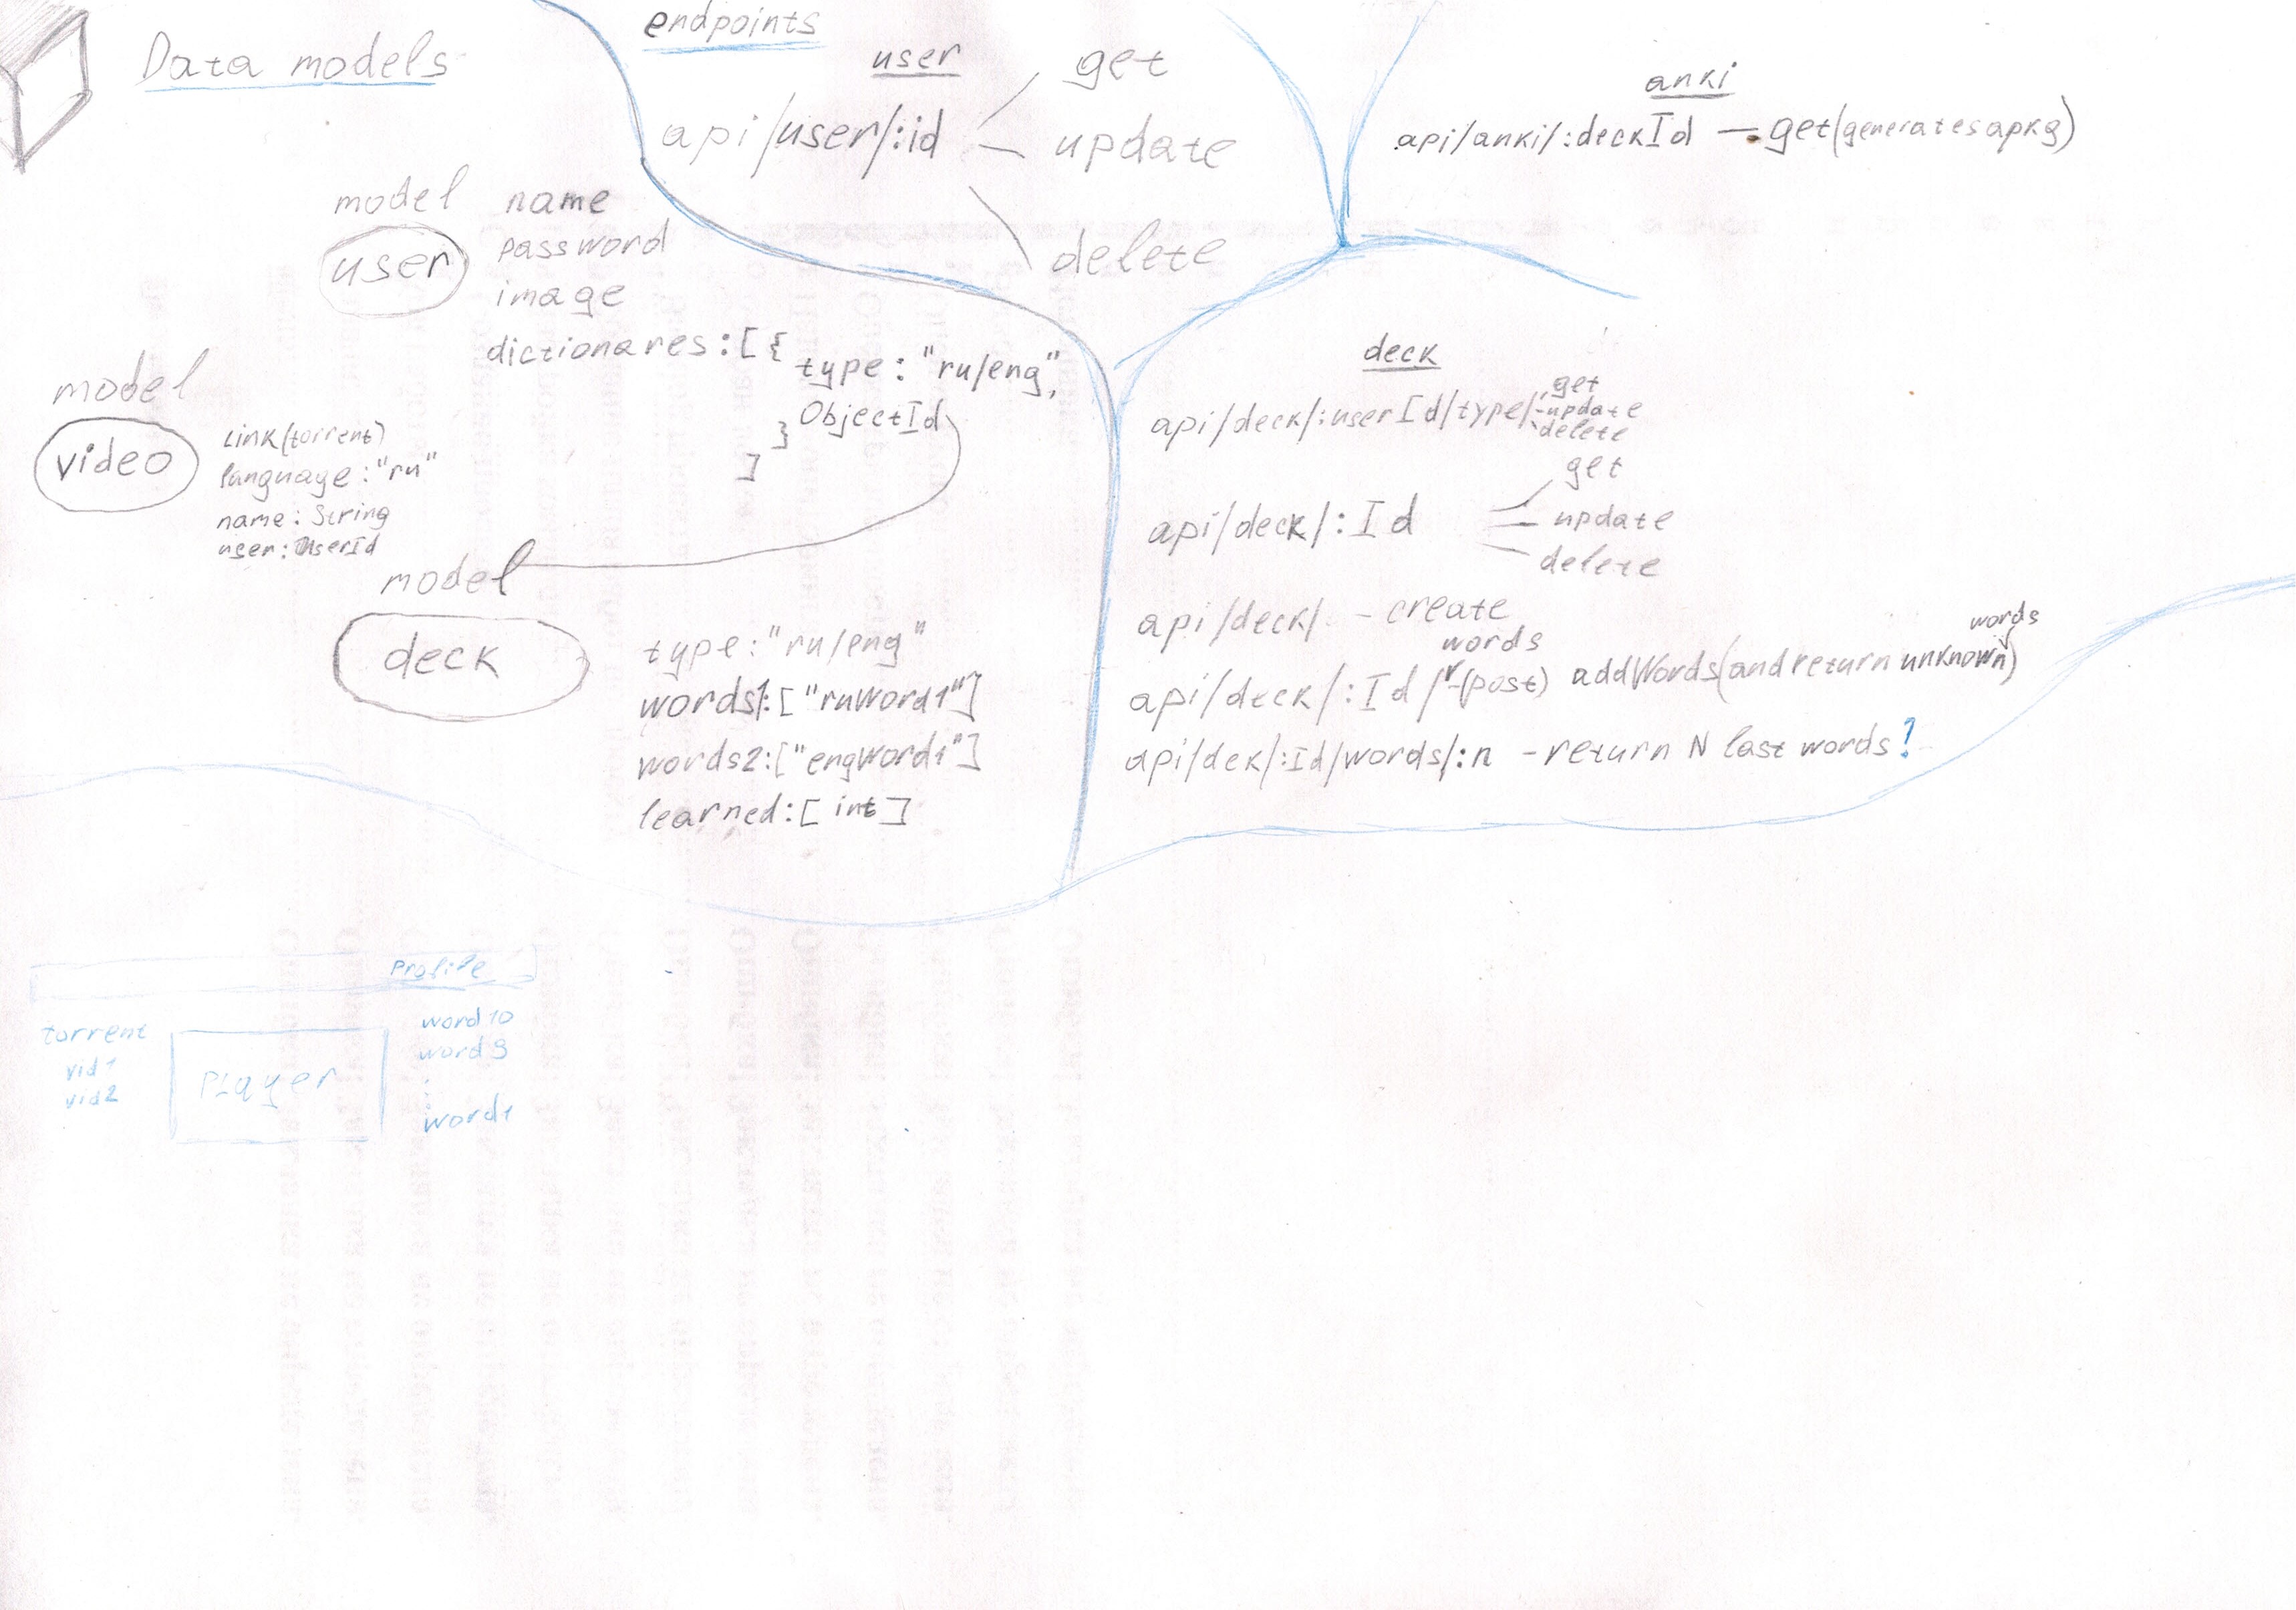 Data models
model
user
name
password
image
dictionares:[{
type: "ru/eng",
ObjectId
}
]
model
video
Link(torrent)
language:"ru"
name: String
user: UserId
model
deck
type:"ru/eng"
words1:["ruWord1"]
words2:["engWord1"]
learned:[int]
endpoints
user
api/user/:id
get
update
delete
anki
api/anki/:deckId — get(generates apkg)
deck
api/deck/:userId/type/
get
-update
delete
api/deck/:Id
get
update
delete
api/deck/ - create
words
api/deck/:Id/-(post) addWords(and return unknown)
words
api/dek/:Id/words/:n - return N last words?
Profile
torrent
vid1
vid2
PLayer
word10
word9
:
word1